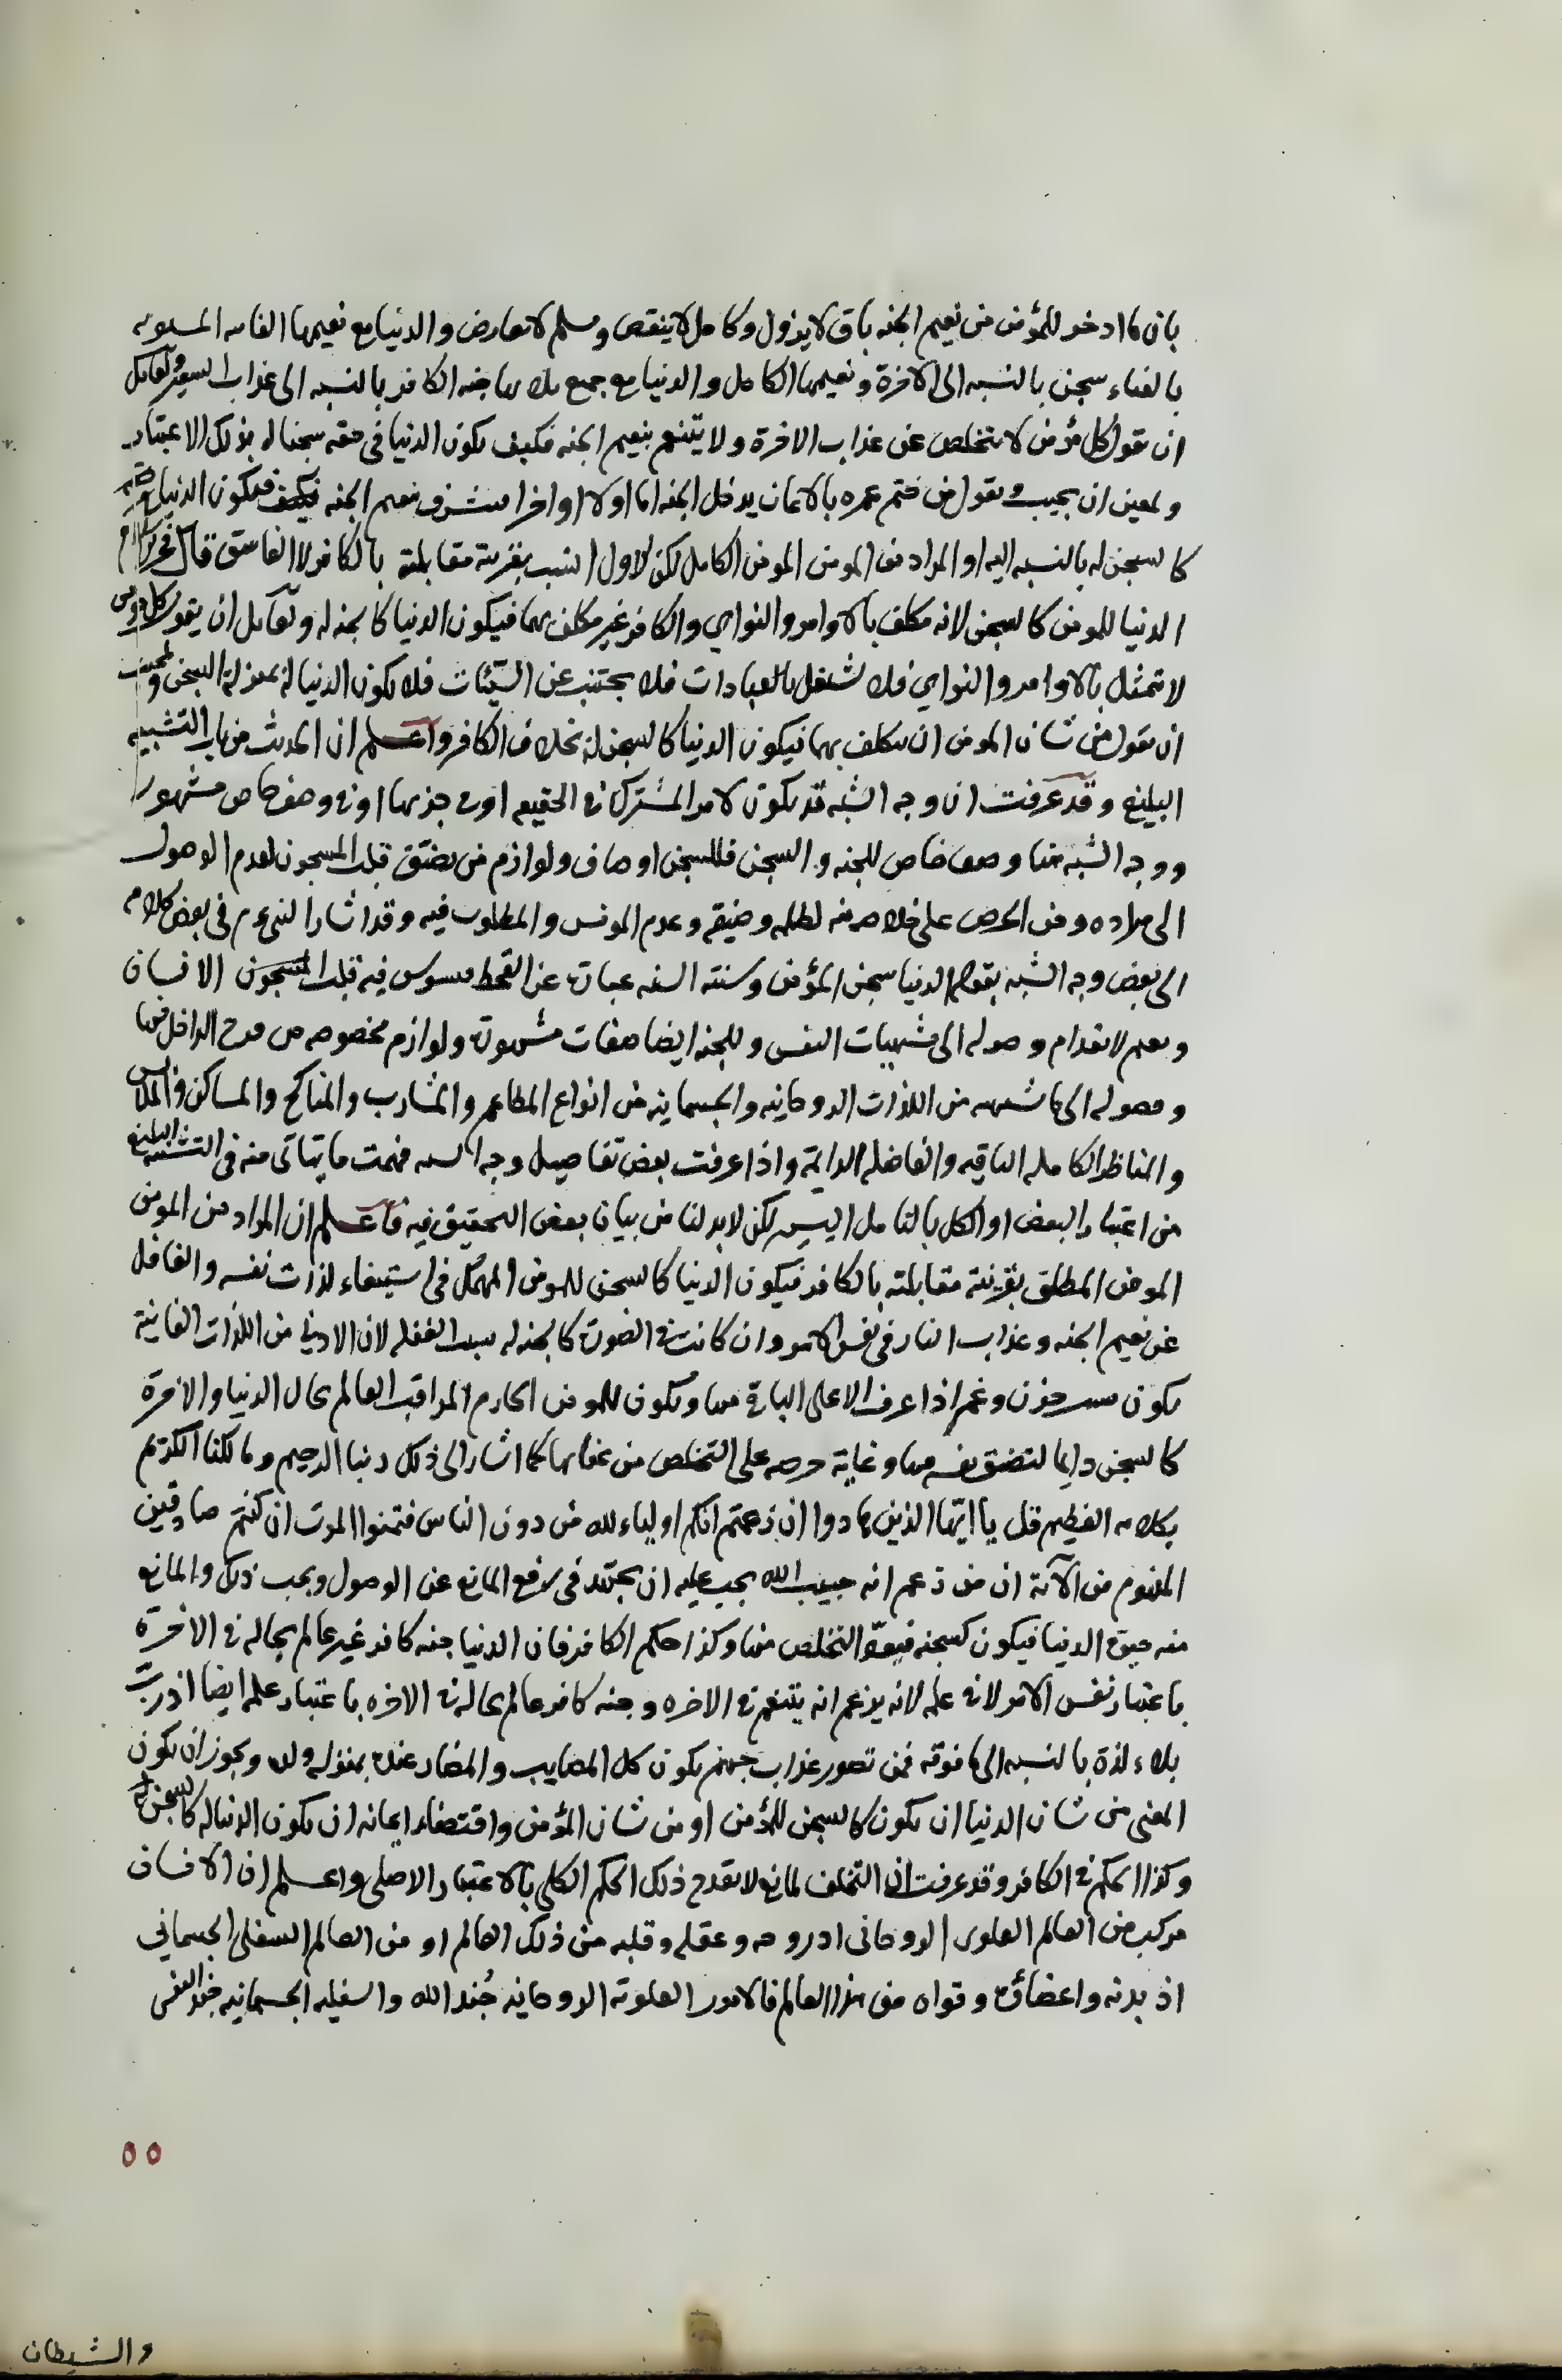 بان ما ادخر للمؤمن من نعيم الجنه باق لا يزول وكامل لا ينقص ومسلم لا يعارض والدنيا مع نعيمها الفانيه
بالفناء سجن بالنسبه الى الاخرة ونعيمها الكامل والدنيا مع جميع بلائها جنه الكافر بالنسبه الى عذاب السعير ولقايل
ان يقول كل مؤمن لا يتخلص عن عذاب الاخرة ولا يتنعم بنعيم الجنه فكيف يكون الدنيا فى حقه سجنا له بذلك الاعتبار
ولمعين ان يجيب ويقول من ختم عمره بالايمان يدخل الجنه اما اولا او اخرا بنعيم الجنه فيكون الدنيا
كالسجن له بالنسبه اليه او المراد من المومن المومن الكامل لكن الاول انسب بقرينة مقابلته بالكافر لا الفاسق قال
الدنيا للمومن كالسجن لانه مكلف بالاوامر والنواهي والكافر غير مكلف بهما فيكون الدنيا كالجنه له ولقايل ان يقول كل مومن
لا يتمثل بالاوامر والنواهي فلا يشتغل بالعبادات فلا يجتنب عن السيّئات فلا يكون الدنيا له بمنزلة السجن ولمجيب
ان يقول من شان المومن ان يتكلف بهما فيكون الدنيا كالسجن له بخلاف الكافر واعلم ان الحديث من باب التشبيه
البليغ وقد عرفت ان وجه الشبه قد يكون لامر المشترك فى الحقيقه او فى جزئها او فى وصف خاص مشهور
ووجه الشبه هنا وصف خاص للجنه والسجن فللسجن اوصاف ولوازم من تضيّق قلب المسجون لعدم الوصول
الى مراده ومن الحرص على خلاصه منه لظلمه وضيقه وعدم المونس والمطلوب فيه وقد اشار النبى عم فى بعض كلامه
الى بعض وجه الشبه بقوله الدنيا سجن المؤمن وسنته السنه عبارة عن القحط فيه قلب المسجون الانسان
ويغم لانعدام وصوله الى مشتهيات النفس وللجنه ايضا صفات مشهورة ولوازم مخصوصه من فرح الداخل فيها
وحصوله الى ما تشتهيه من اللذات الروحانيه والجسمانيه من انواع المطاعم والمشارب والمناكح والمساكن والملابس
والمناظر الكامله الباقيه والفاضله الدايمة واذا عرفت بعض تفاصيل وجه الشبه فهمت ما يتاتى منه فى التشبيه البليغ
من اعتبار البعض او الكل بالتامل اليسير لكن لابد لنا من بيان بعض التحقيق فيه فاعلم ان المراد من المومن
المومن المطلق بقرينة مقابلته بالكافر فيكون الدنيا كالسجن للمومن المهمل فى استيفاء لذات نفسه والغافل
عن نعيم الجنه وعذاب النار فى نفس الامر وان كانت فى الصورة كالجنه له بسبب الغفله لان الادنى من اللذات الفانية
يكون سبب حزن وغم اذا عرف الاعلى الباقى منها ويكون للمومن الحازم المراقب العالم بحال الدنيا والاخرة
كالسجن دايما لتضيق نفسه منها وغاية حرصه على التخلص من عنائها كما اشار الى ذلك ربنا الرحيم ومالكنا الكريم
بكلامه العظيم قل يا ايّها الذين هادوا ان زعمتم انكم اولياء لله من دون الناس فتمنوا الموت ان كنتم صادقين
المفهوم من الآية ان من زعم انه حبيب الله يجب عليه ان يجتهد فى رفع المانع عن الوصول ويجب ذلك والمانع
منه حيوة الدنيا فيكون كسجنه فيودّ التخلص منها وكذا حكم الكافر فان الدنيا جنه كافر غير عالم بحاله فى الاخرة
باعتبار نفس الامر لا فى علمه لانه يزعم انه يتنعم فى الاخره وجنه كافر عالم بحاله فى الاخره باعتبار علمه ايضا اذ ربّ
بلاء لذة بالنسبه الى ما فوقه فمن تصور عذاب جهنم يكون كل المصايب والمضار عنده بمنزلة ويجوز ان يكون
المعنى من شان الدنيا ان يكون كالسجن للمؤمن او من شان المؤمن واقتضاء ايمانه ان يكون الدنيا له كالسجن
وكذا الحكم فى الكافر وقد عرفت ان التخلف لمانع لا يقدح ذلك الحكم الكلى بالاعتبار الاصلى واعلم ان الانسان
مركب من العالم العلوى الروحانى اذ روحه وعقله وقلبه من ذلك العالم او من العالم السفلى الجسمانى
اذ بدنه واعضاؤه وقواه من هذا العالم فالامور العلوية الروحانيه جُند الله والسفليه الجسمانيه جند النفس
٥٥
والشيطان